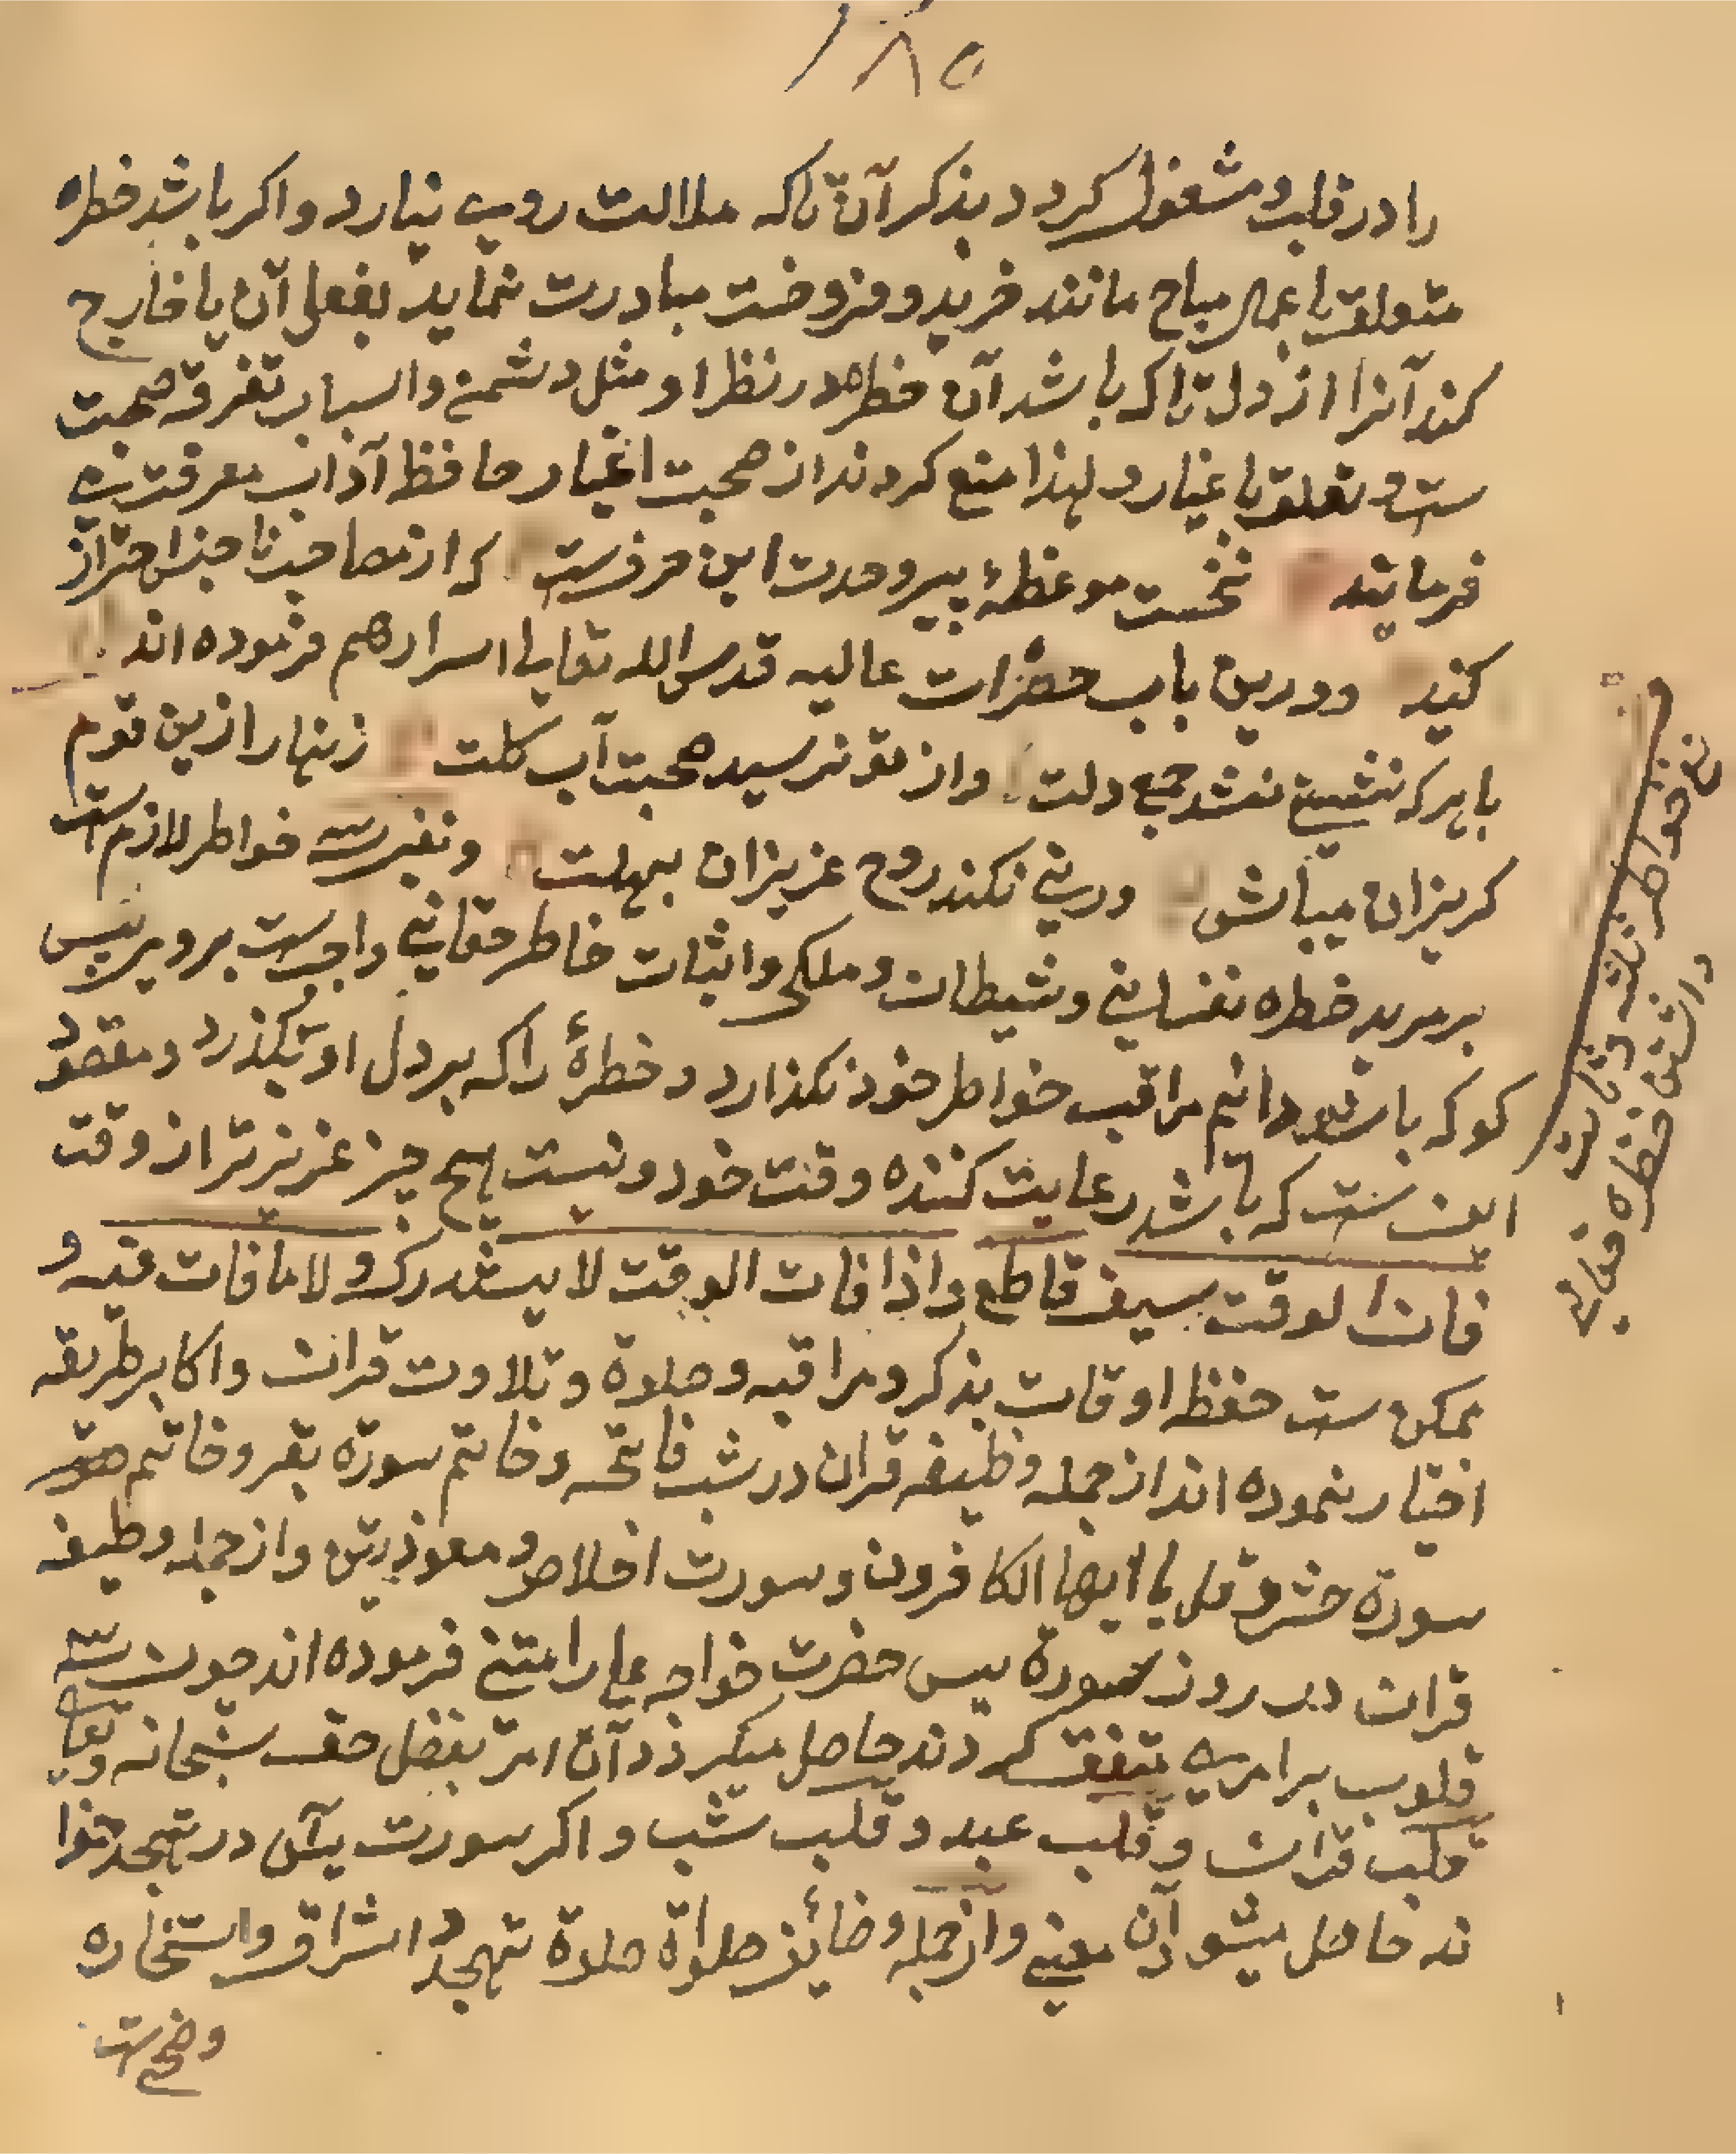 ١٨٥
را در قلب و مشغول کردد بذکر آن تاکه ملالت روی نیارد و اکر باشد خطره
متعلق باعمال مباح مانند خرید و فروخت مبادرت نماید بفعل آن یا خارج
کند آنرا از دل تاکه باشد آن خطره در نظر او مثل دشمن و اسباب تفرقه صحبت
ست و تعلق با غیار و لهذا منع کردند از صحبت اغیار حافظ آداب معرفت نیز
فرمایند نخست موعظهٔ پیر وحدت این حرفست که از مصاحب ناجنس احتراز
کنید و درین باب حضرات عالیه قدس الله تعالی اسرارهم فرموده اند
با هر که نشینی نشد جمع دلت و از تو نرسید صحبت آب کلت زنهار ازین قوم
کریزان میباش ورنی نکند روح عزیزان بهلت و نفی خواطر لازم ست
بر مرید خطره نفسانی و شیطان و ملکی و اثبات خاطر حقانی واجبست بر وی پس
کو که باشد دائم مراقب خواطر خود نکذارد و خطرهٔ را که بر دل او بکذرد و مقصود
این ست که باشد رعایت کننده وقت خود و نیست هیچ چیز عزیزتر از وقت
فان الوقت سیف قاطع و اذا فات الوقت لا یستدرک و لا ما فات فیه و
ممکن ست حفظ اوقات بذکر و مراقبه و صلوة و تلاوت قران و اکابر طریقه
اختیار نموده اند از جمله وظیفه قران در شب فاتحه و خاتم سورة بقر و خاتم
سورة حشر و قل یا ایها الکافرون و سورت اخلاص و معوذتین و از جمله وظیفه
قران در روز سورة یس حضرت خواجه علی رامتنی فرموده اند چون سه
قلوب بر امری متفق کردند حاصل میکردد آن امر بفضل حق سبحانه و تعالی
قلب قران و قلب عبد و قلب شب و اکر سورت یس در تهجد خوا
ند حاصل میشود آن معنی و از جمله وظائف صلواة صلوة تهجد و اشراق و استخاره
وضحی ست
نفی خواطر ثلثه و ثابت
داشتن خطره حقانی